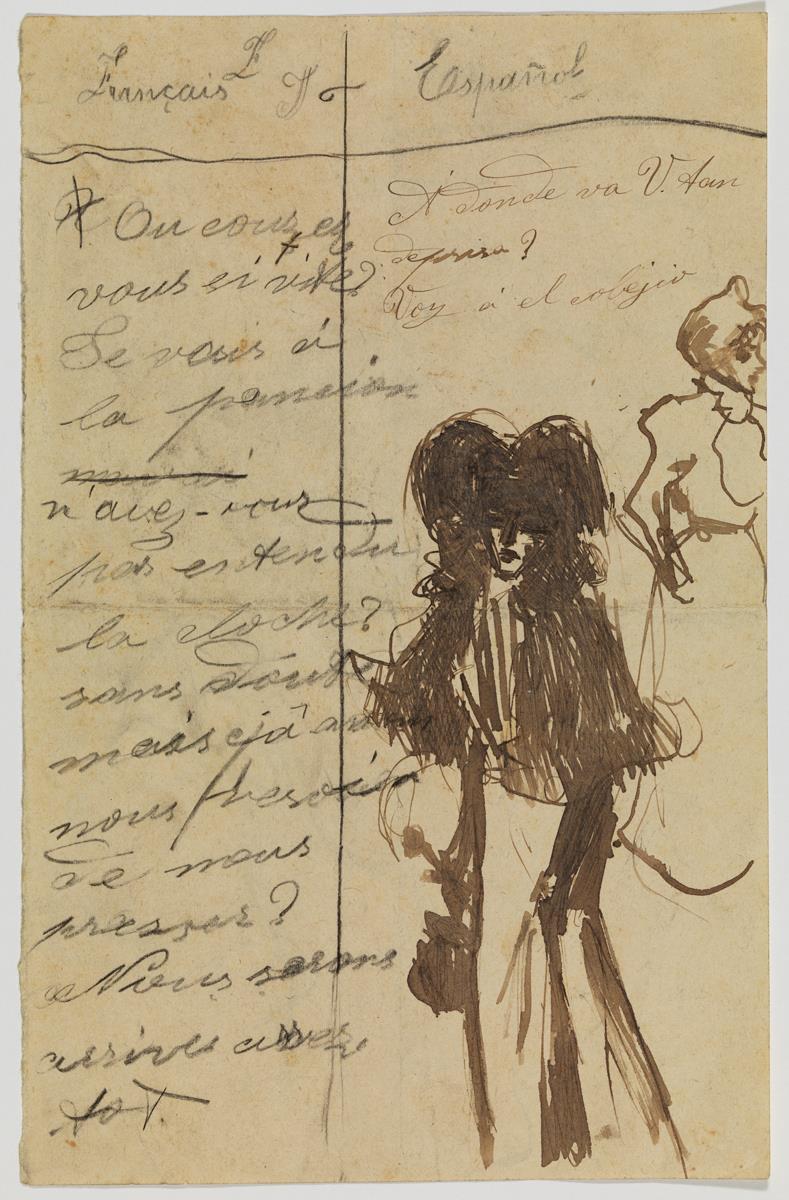 Français
Español
Ou courez
vous si vite?
Je vais à
la pancion
n'avez-vous
pas entendu
la cloche?
sans doute
mais
nous besoin
de nous
presser?
Nous serons
arrives assez
tot
A donde va V. tan
deprisa?
Voy á el colejio